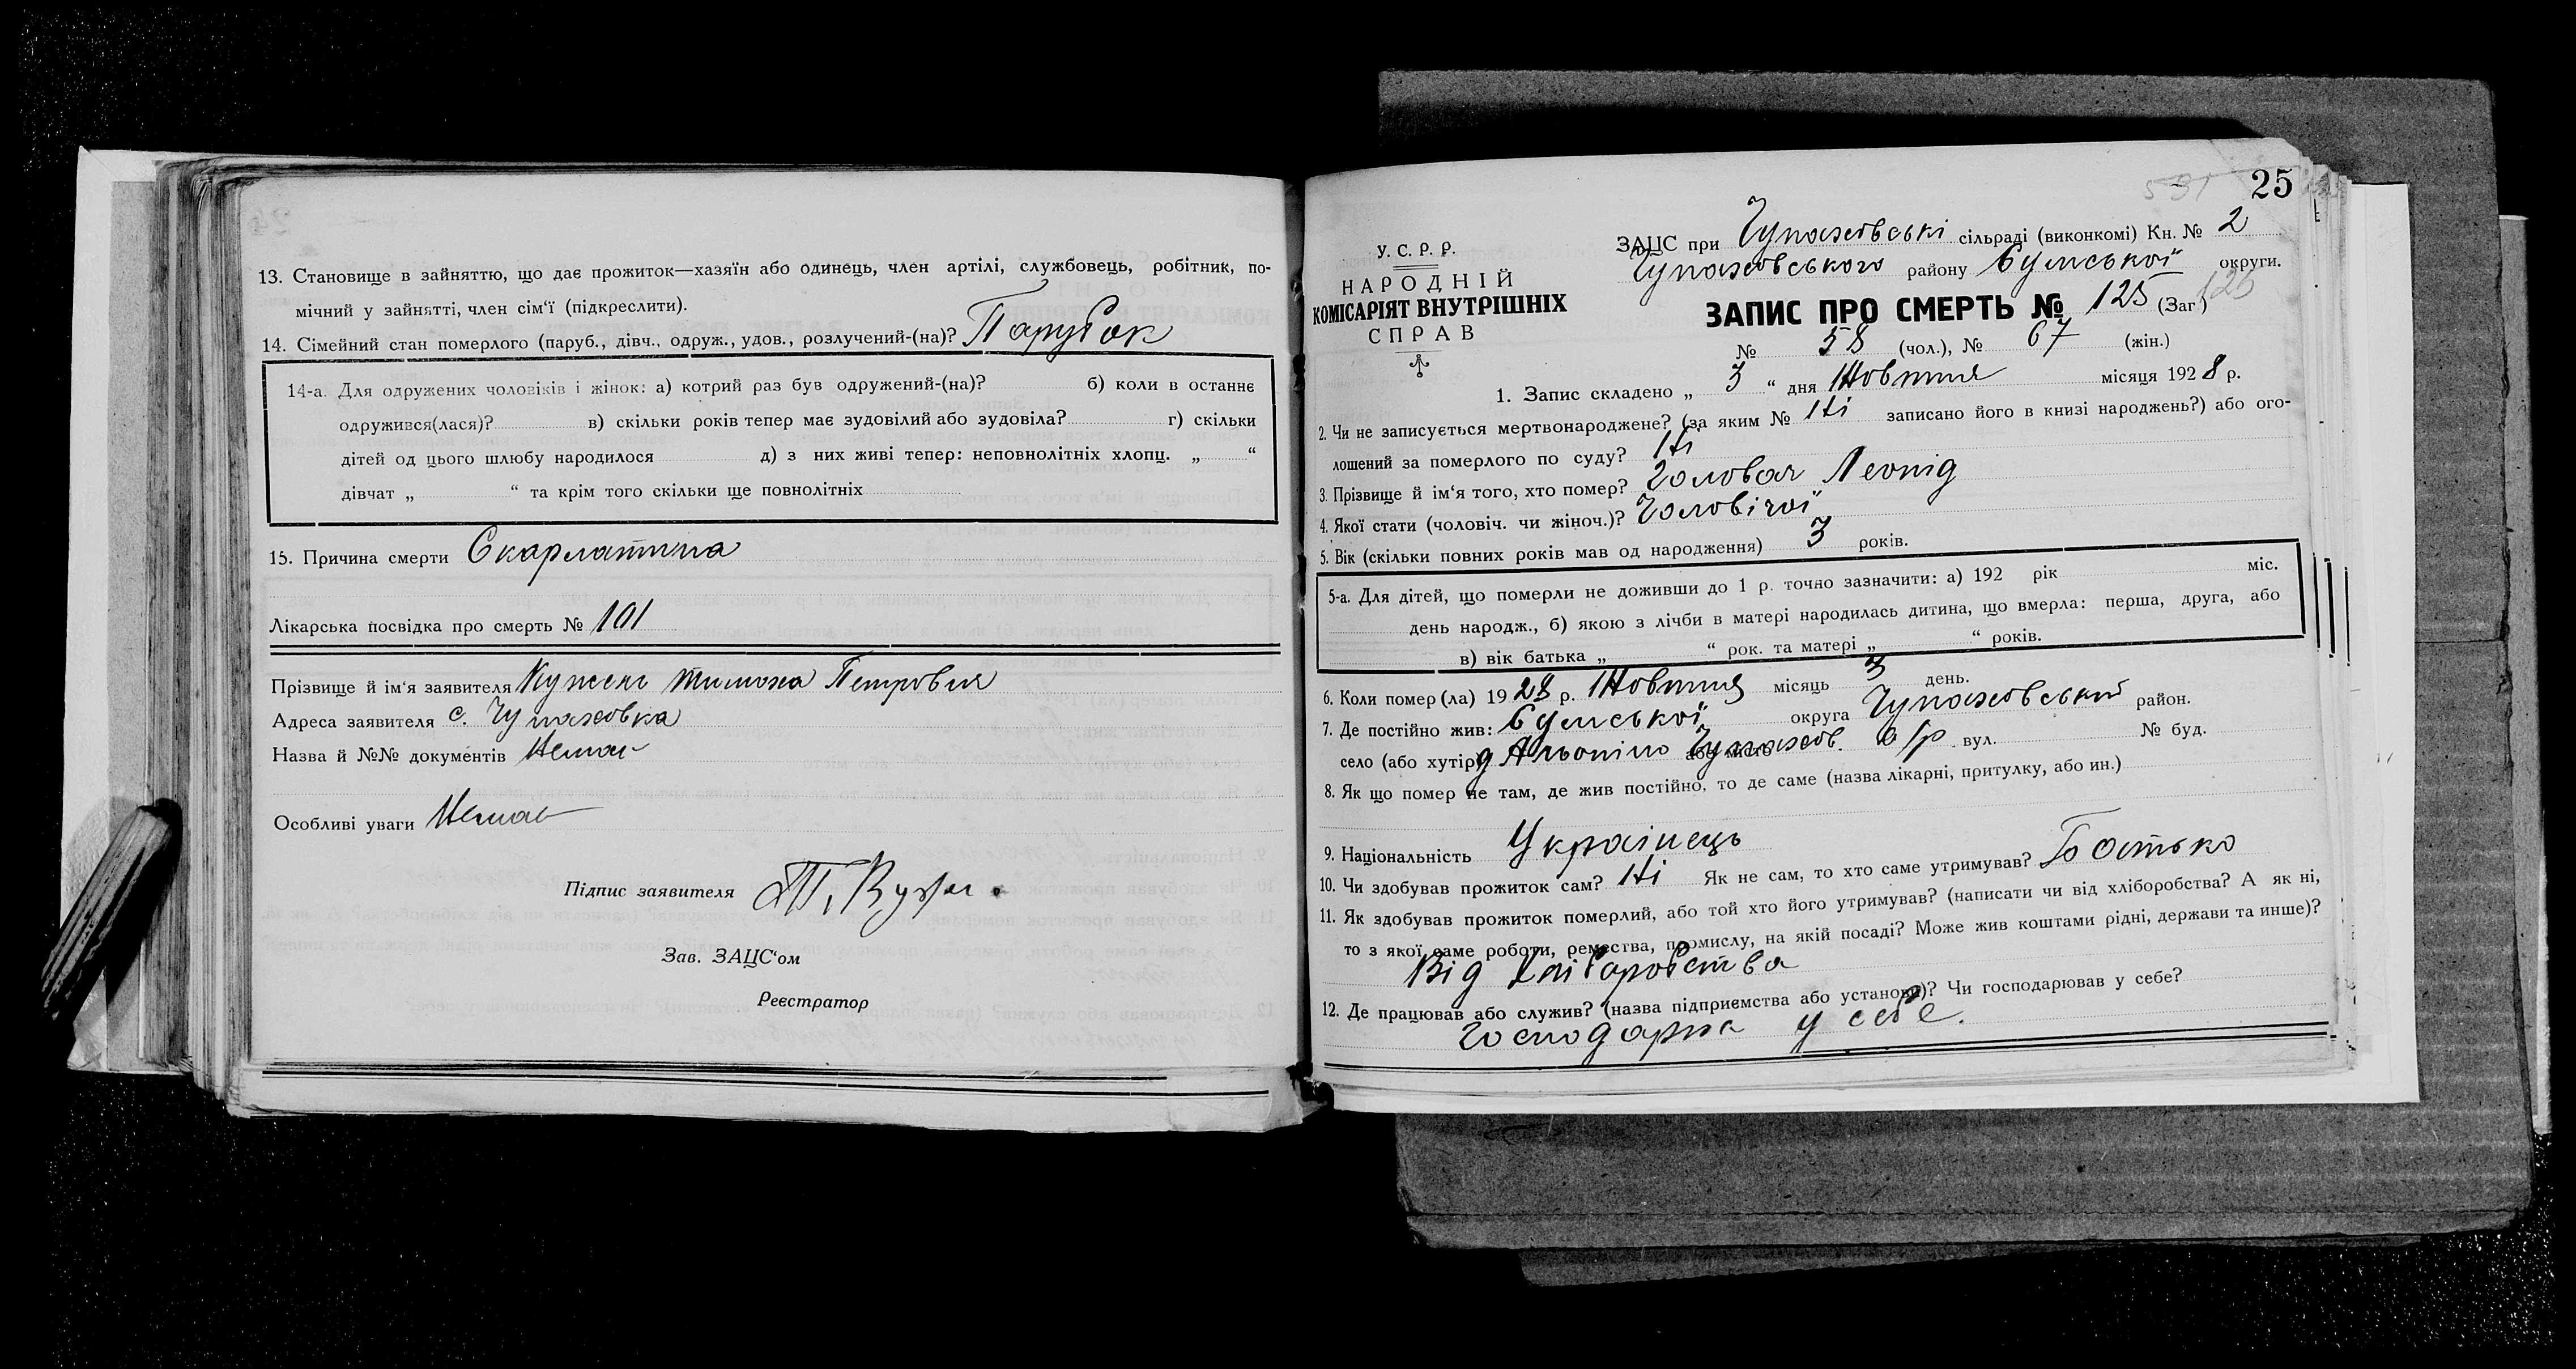 13. Становище в зайняттю, що дає прожиток—хазяїн або одинець, член артілі, службовець, робітник, по-
мічний у зайнятті, член сім‘ї (підкреслити).
14. Сімейний стан померлого (паруб., дівч., одруж., удов., розлучений-(на)? Парубок
14-а. Для одружених чоловіків і жінок: а) котрий раз був одружений-(на)? б) коли в останнє
одружився(лася)? в) скільки років тепер має зудовілий або зудовіла? г) скільки
дітей од цього шлюбу народилося д) з них живі тепер: неповнолітніх хлопц. „ “
дівчат „ “ та крім того скільки ще повнолітніх
15. Причина смерти Скарлатина
Лікарська посвідка про смерть № 101
Прізвище й ім‘я заявителя Тимоха Петрович
Адреса заявителя с. Чупаховка
Назва й №№ документів Немає
Особливі уваги Немає
Підпис заявителя
Зав. ЗАЦС‘ом
Реєстратор
531 25
У. С. Р. Р.
НАРОДНІЙ
КОМІСАРІЯТ ВНУТРІШНІХ
СПРАВ
ЗАЦС при Чупаховські сільраді (виконкомі) Кн. № 2
Чупаховського району Сумської округи.
ЗАПИС ПРО СМЕРТЬ № 125 (Заг) 125
№ 58 (чол.), № 67 (жін.)
1. Запис складено „ 3 “ дня Жовтня місяця 1928 р.
2. Чи не записується мертвонароджене? (за яким № Ні записано його в книзі народжень?) або ого-
лошений за померлого по суду? Ні
3. Прізвище й ім‘я того, хто помер? Головач Леонід
4. Якої стати (чоловіч. чи жіноч.)? Чоловічої
5. Вік (скільки повних років мав од народження) 3 років.
5-а. Для дітей, що померли не доживши до 1 р. точно зазначити: а) 192 рік міс.
день народж., б) якою з лічби в матері народилась дитина, що вмерла: перша, друга, або
в) вік батька „ “ рок. та матері „ “ років.
6. Коли помер(ла) 1928 р. Жовтня місяць 3 день.
7. Де постійно жив: Сумської округа Чупаховський район.
село (або хутір) або місто Чупахов. с/р вул. № буд.
8. Як що помер не там, де жив постійно, то де саме (назва лікарні, притулку, або ин.)
9. Національність Українець
10. Чи здобував прожиток сам? Ні Як не сам, то хто саме утримував? Батько
11. Як здобував прожиток померлий, або той хто його утримував? (написати чи від хліборобства? А як ні,
то з якої саме роботи, ремества, промислу, на якій посаді? Може жив коштами рідні, держави та инше)?
Від Хліборобства
12. Де працював або служив? (назва підприємства або установи)? Чи господарював у себе?
у себе.